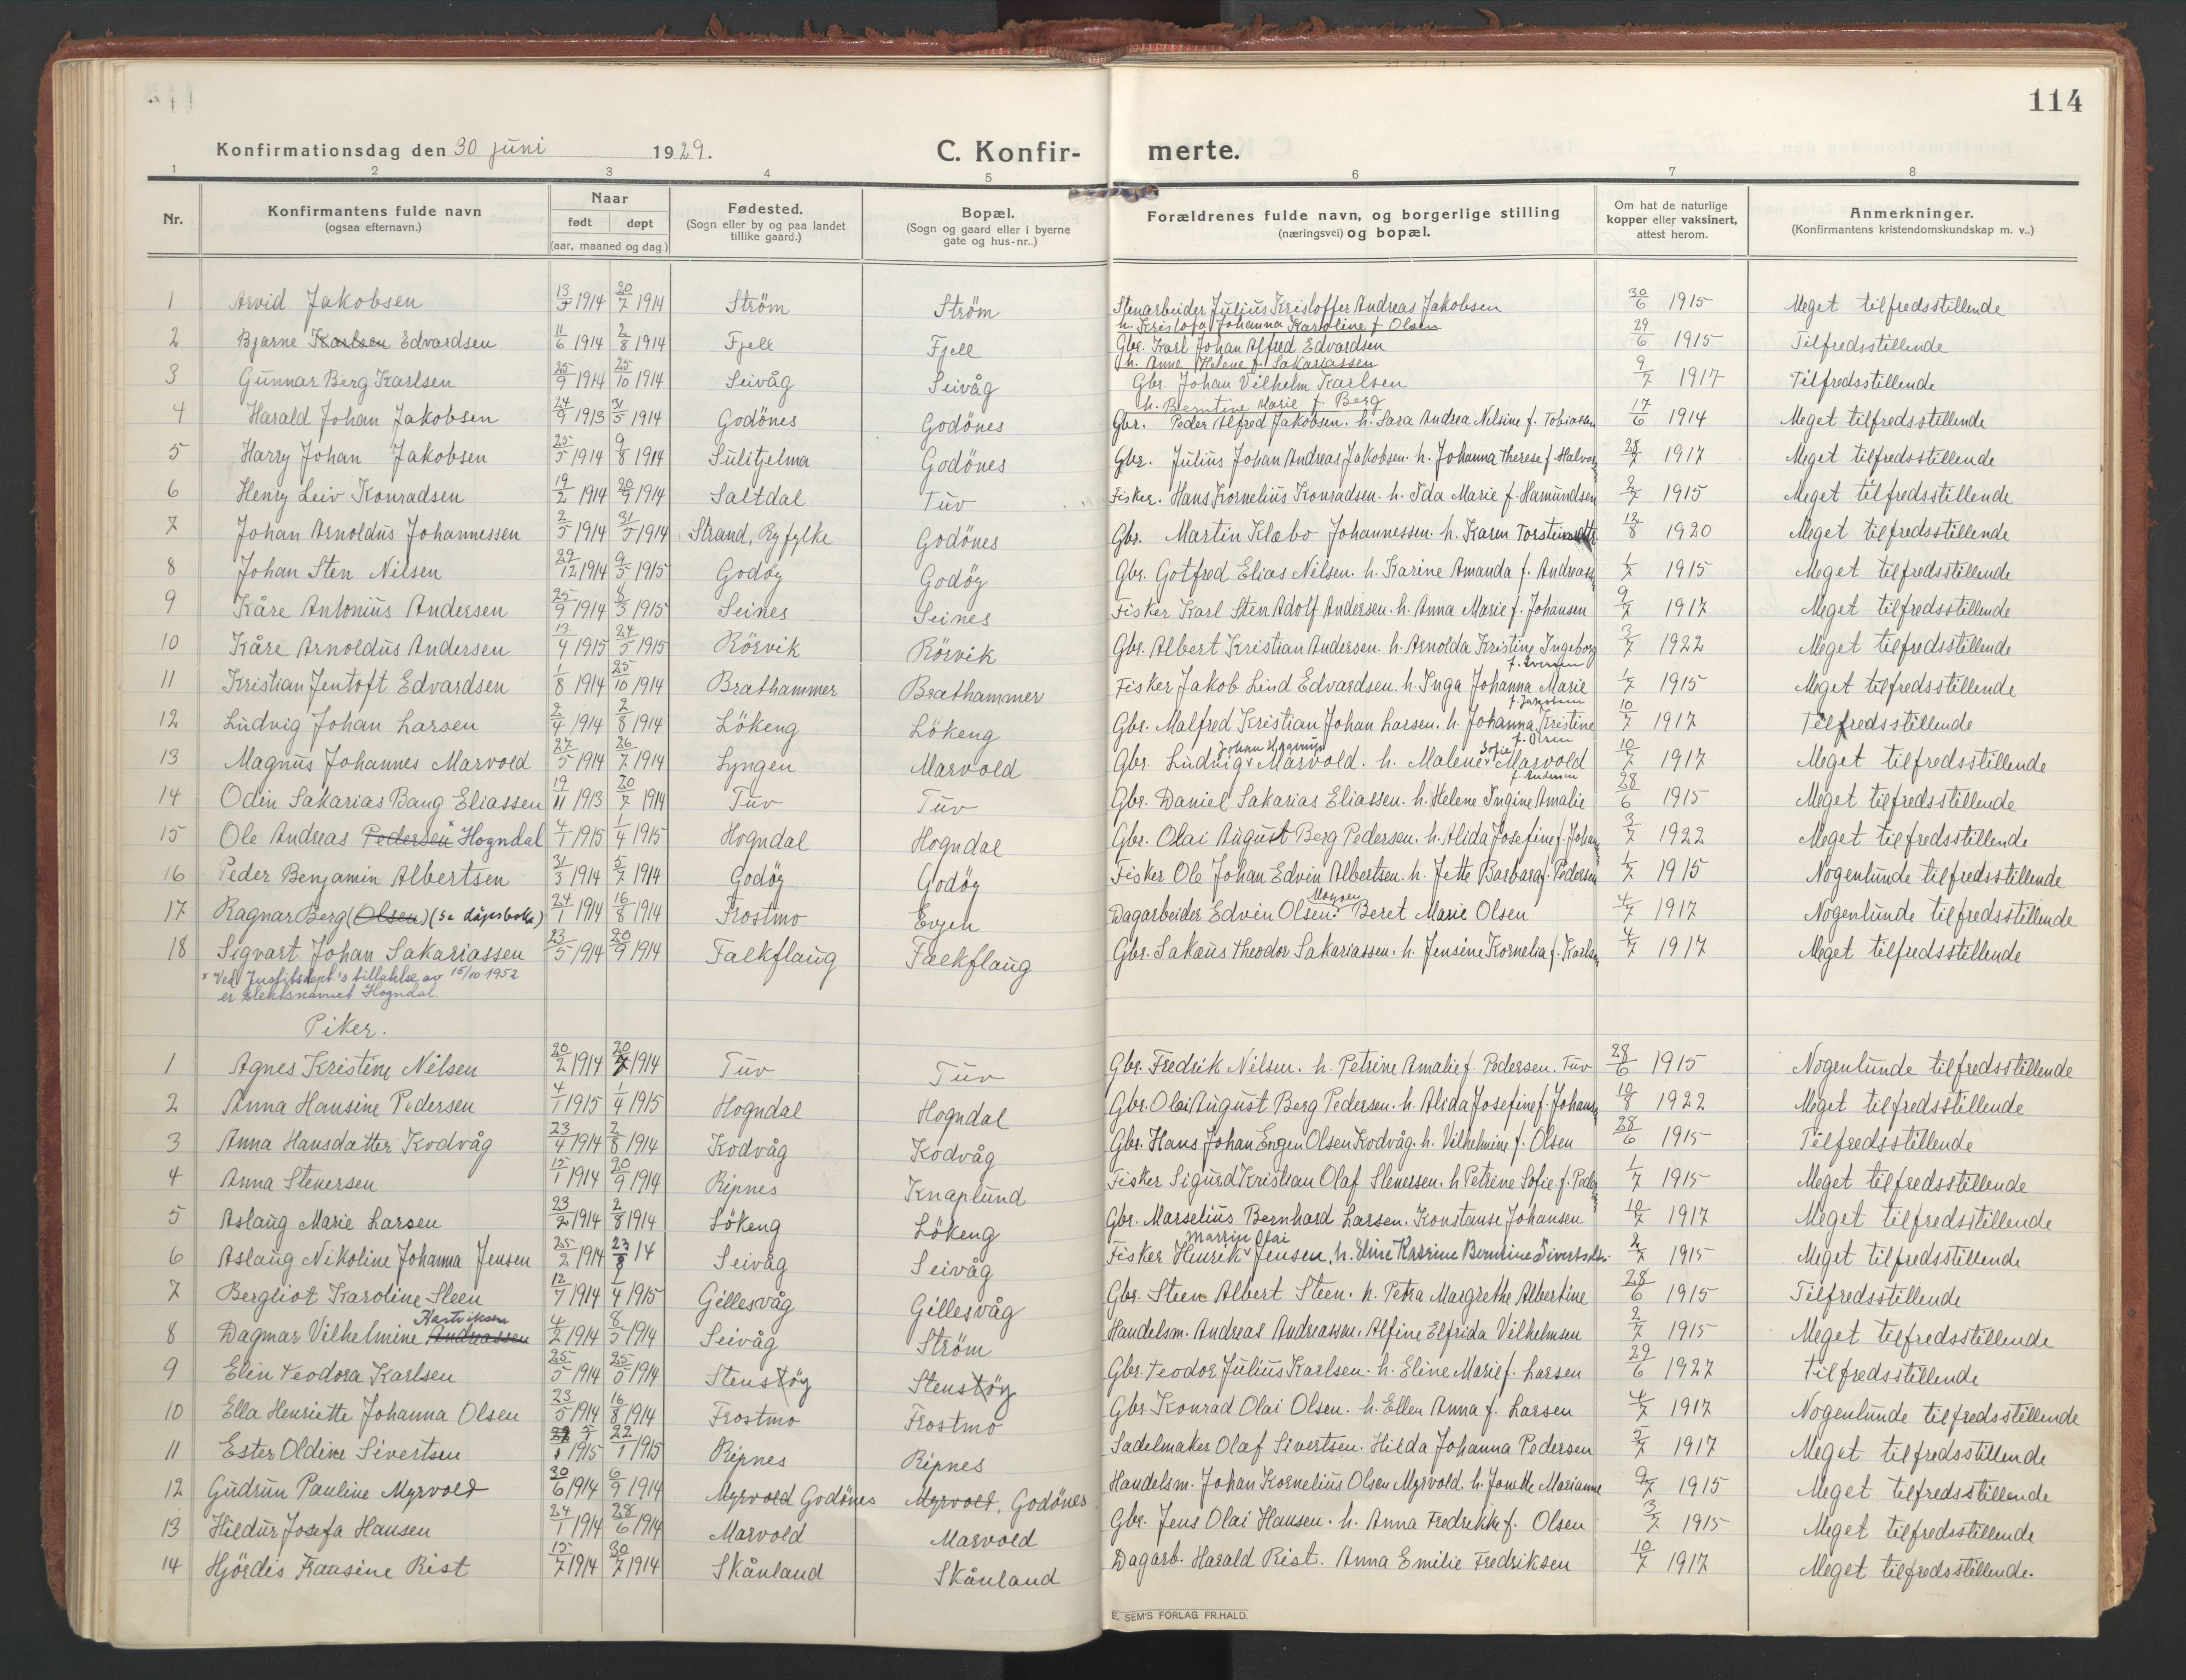 114
Konfirmationsdag den 30 juni 1929. C. Konfir- merte.
1 2 3 4 5 6 7 8
Nr. Konfirmantens fulde navn (ogsaa efternavn.) Naar født døpt (aar, maaned og dag) Fødested. (Sogn eller by og paa landet tillike gaard.) Bopæl. (Sogn og gaard eller i byerne gate og hus-nr..) Forældrenes fulde navn, og borgerlige stilling (næringsvei) og bopæl. Om hat de naturlige kopper eller vaksinert, attest herom. Anmerkninger. (Konfirmantens kristendomskundskap m. v..)
1 Arvid Jakobsen 13/5 1914 20/7 1914 Ström Ström Stenarbeider Julius Kristoffer Andreas Jakobsen h. Kristofa Johanna Karoline f Olsen 30/6 1915 Meget tilfredsstillende
2 Bjarne Karlsen Edvardsen 11/6 1914 2/8 1914 Fjell Fjell Gbr. Karl Johan Alfred Edvardsen h. Anne Helene f. Sakariassen 29/6 1915 Tilfredsstillende
3 Gunnar Berg Karlsen 25/9 1914 25/10 1914 Seivåg Seivåg Gbr. Johan Vilhelm Karlsen h. Berntine Marie f. Berg 9/7 1917 Tilfredsstillende
4 Harald Johan Jakobsen 24/9 1913 31/5 1914 Godönes Godönes Gbr. Peder Alfred Jakobsen. h. Sara Andrea Nelsine f. Tobiassen 17/6 1914 Meget tilfredsstillende
5 Harry Johan Jakobsen 25/5 1914 9/8 1914 Sulitjelma Godönes Gbr. Julius Johan Andreas Jakobsen. h. Johanna Therese f. Halvors 28/7 1917 Meget tilfredsstillende
6 Henry Leiv Konradsen 19/2 1914 20/9 1914 Saltdal Tuv Fisker. Hans Kornelius Konradsen. h. Ida Marie f. Hamundsen 2/7 1915 Meget tilfredsstillende
7 Johan Arnoldus Johannessen 2/5 1914 31/5 1914 Strand, Ryfylke Godönes Gbr. Martin Klæbo Johannessen. h. Karen Torsteinsdtr. 12/8 1920 Meget tilfredsstillende
8 Johan Sten Nilsen 29/12 1914 9/5 1915 Godöy Godöy Gbr. Gotfred Elias Nilsen. h. Karine Amanda f. Andreass 1/7 1915 Meget tilfredsstillende
9 Kåre Antonius Andersen 25/9 1914 8/3 1915 Seines Seines Fisker Karl Sten Adolf Andersen. h. Anna Marie f. Johansen 9/7 1917 Meget tilfredsstillende
10 Kåre Arnoldus Andersen 13/4 1915 24/5 1915 Rörvik Rörvik Gbr. Albert Kristian Andersen. h. Arnolda Kristine Ingeborg f. Iversen 3/7 1922 Meget tilfredsstillende
11 Kristian Jentoft Edvardsen 1/8 1914 25/10 1914 Brathammer Brathammer Fisker Jakob Lind Edvardsen. h. Inga Johanna Marie f. Jakobsen 1/7 1915 Meget tilfredsstillende
12 Ludvig Johan Larsen 2/4 1914 2/8 1914 Lökeng Lökeng Gbr. Malfred Kristian Johan Larsen. h. Johanna Kristine f. Olsen 10/7 1917 Tilfredsstillende
13 Magnus Johannes Marvold 27/5 1914 26/7 1914 Lyngen Marvold Gbr. Ludvig Johan Hagerup Marvold. h. Malene Sofie Marvold f. Andersen 10/7 1917 Meget tilfredsstillende
14 Odin Sakarias Bang Eliassen 19/11 1913 20/7 1914 Tuv Tuv Gbr. Daniel Sakarias Eliassen. h. Helene Ingine Amalie 28/6 1915 Meget tilfredsstillende
15 Ole Andreas Pedersen x Hogndal 4/1 1915 1/4 1915 Hogndal Hogndal Gbr. Olai August Berg Pedersen. h. Alida Josefine f. Johans 3/7 1922 Meget tilfredsstillende
16 Peder Benjamin Albertsen 31/3 1914 5/7 1914 Godöy Godöy Fisker Ole Johan Edvin Albertsen. h. Jette Barbara f. Pedersen 1/7 1915 Nogenlunde tilfredsstillende
17 Ragnar Berg (Olsen) (se dåpsboka) 24/1 1914 16/8 1914 Frostmo Evjen Dagarbeider Edvin Olsen. Beret Marie Olsen 4/7 1917 Nogenlunde tilfredsstillende
18 Sigvart Johan Sakariassen 23/5 1914 20/9 1914 Falkflaug Falkflaug Gbr. Sakæus Theodor Sakariassen. h. Jensine Kornelia f. Karlsen 4/7 1917 Meget tilfredsstillende
x Ved Justitsdept's tillatelse av 15/10 1952
er slektsnavnet Hogndal.
Piker.
1 Agnes Kristine Nilsen 20/2 1914 20/7 1914 Tuv Tuv Gbr. Fredrik Nilsen. h. Petrine Amalie f. Pedersen. Tuv 28/6 1915 Nogenlunde tilfredsstillende
2 Anna Hansine Pedersen 4/1 1915 1/4 1915 Hogndal Hogndal Gbr. Olai August Berg Pedersen. h. Alida Josefine f. Johans 10/8 1922 Meget tilfredsstillende
3 Anna Hansdatter Kodvåg 23/4 1914 2/8 1914 Kodvåg Kodvåg Gbr. Hans Johan Engen Olsen Kodvåg. h. Vilhelmine f. Olsen 28/6 1915 Tilfredsstillende
4 Anna Stenersen 15/1 1914 20/9 1914 Ripnes Knaplund Fisker Sigurd Kristian Olaf Stenersen. h Petrine Sofie f. Peders 1/7 1915 Meget tilfredsstillende
5 Aslaug Marie Larsen 23/2 1914 2/8 1914 Lökeng Lökeng Gbr. Marselius Bernhard Larsen. Konstanse Johansen 10/7 1917 Meget tilfredsstillende
6 Aslaug Nikoline Johanna Jensen 25/2 1914 23/8 14 Seivåg Seivåg Fisker Henrik Martin Olai Jensen. h. Eline Katrine Berntine Sivertsdtr. 2/7 1915 Meget tilfredsstillende
7 Bergliot Karoline Steen 12/7 1914 1/4 1915 Gillesvåg Gillesvåg Gbr. Steen Albert Steen. h. Petra Margrethe Albertine 28/6 1915 Tilfredsstillende
8 Dagmar Vilhelmine Andreassen 4/2 1914 8/5 1914 Seivåg Ström Handelsm. Andreas Andreassen. Alfine Elfrida Vilhelmsen 2/7 1915 Meget tilfredsstillende
9 Elin Teodora Karlsen 25/5 1914 25/5 1914 Stenstöy Stenstöy Gbr. Teodor Julius Karlsen. h. Eline Marie f. Larsen 29/6 1927 Tilfredsstillende
10 Ella Henriette Johanna Olsen 23/5 1914 16/8 1914 Frostmo Frostmo Gbr. Konrad Olai Olsen. h. Ellen Anna f. Larsen 4/7 1917 Nogenlunde tilfredsstillende
11 Ester Oldine Sivertsen 1915 22/1 1915 Ripnes Ripnes Sadelmaker Olaf Sivertsen. Hilda Johanna Pedersen 3/7 1917 Meget tilfredsstillende
12 Gudrun Pauline Myrvold 30/6 1914 6/9 1914 Myrvold Godönes Myrvold, Godönes Handelsm. Johan Kornelius Olsen Myrvold h. Jonette Marianne 9/7 1915 Meget tilfredsstillende
13 Hildur Josefa Hansen 24/1 1914 28/6 1914 Marvold Marvold Gbr. Jens Olai Hansen. h. Anna Fredrikke f. Olsen 3/7 1915 Meget tilfredsstillende
14 Hjördis Fransine Rist 15/7 1914 30/7 1914 Skånland Skånland Dagarb. Harald Rist. Anna Emilie Fredriksen 10/7 1917 Meget tilfredsstillende.
E. SEM'S FORLAG FR.HALD.